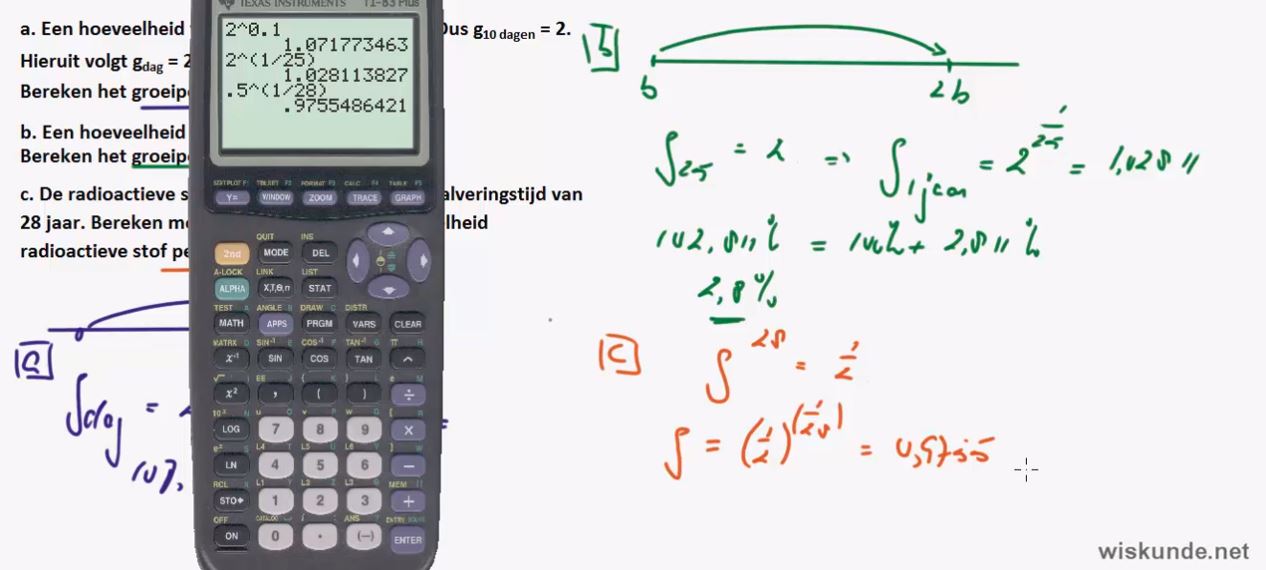 a. Een hoeveelheid
us g10 dagen = 2.
Hieruit volgt gdag = 2
Bereken het groeipe
b. Een hoeveelheid
Bereken het groeipe
c. De radioactieve s
alveringstijd van
28 jaar. Bereken me
lheid
radioactieve stof pe
a
gdag =
107,
TEXAS INSTRUMENTS TI-83 Plus
2^0.1
1.071773463
2^(1/25)
1.028113827
.5^(1/28)
.9755486421
STAT PLOT F1 TBLSET F2 FORMAT F3 CALC F4 TABLE F5
Y= WINDOW ZOOM TRACE GRAPH
QUIT INS
2nd MODE DEL
A-LOCK LINK LIST
ALPHA X,T,θ,n STAT
TEST A ANGLE B DRAW C DISTR
MATH APPS PRGM VARS CLEAR
MATRX D SIN-1 E COS-1 F TAN-1 G π H
x-1 SIN COS TAN ^
x2 , ( ) ÷
LOG 7 8 9 ×
LN 4 5 6 −
RCL X L1 Y L2 Z L3 θ MEM "
STO 1 2 3 +
OFF CATALOG ANS ENTRY SOLVE
ON 0 . (−) ENTER
b
b 2b
g25 = 2 => g1jaar = 2^1/25 = 1,02811
102,811% = 100% + 2,811%
2,8%
c
g^28 = 1/2
g = (1/2)^(1/28) = 0,9755
wiskunde.net